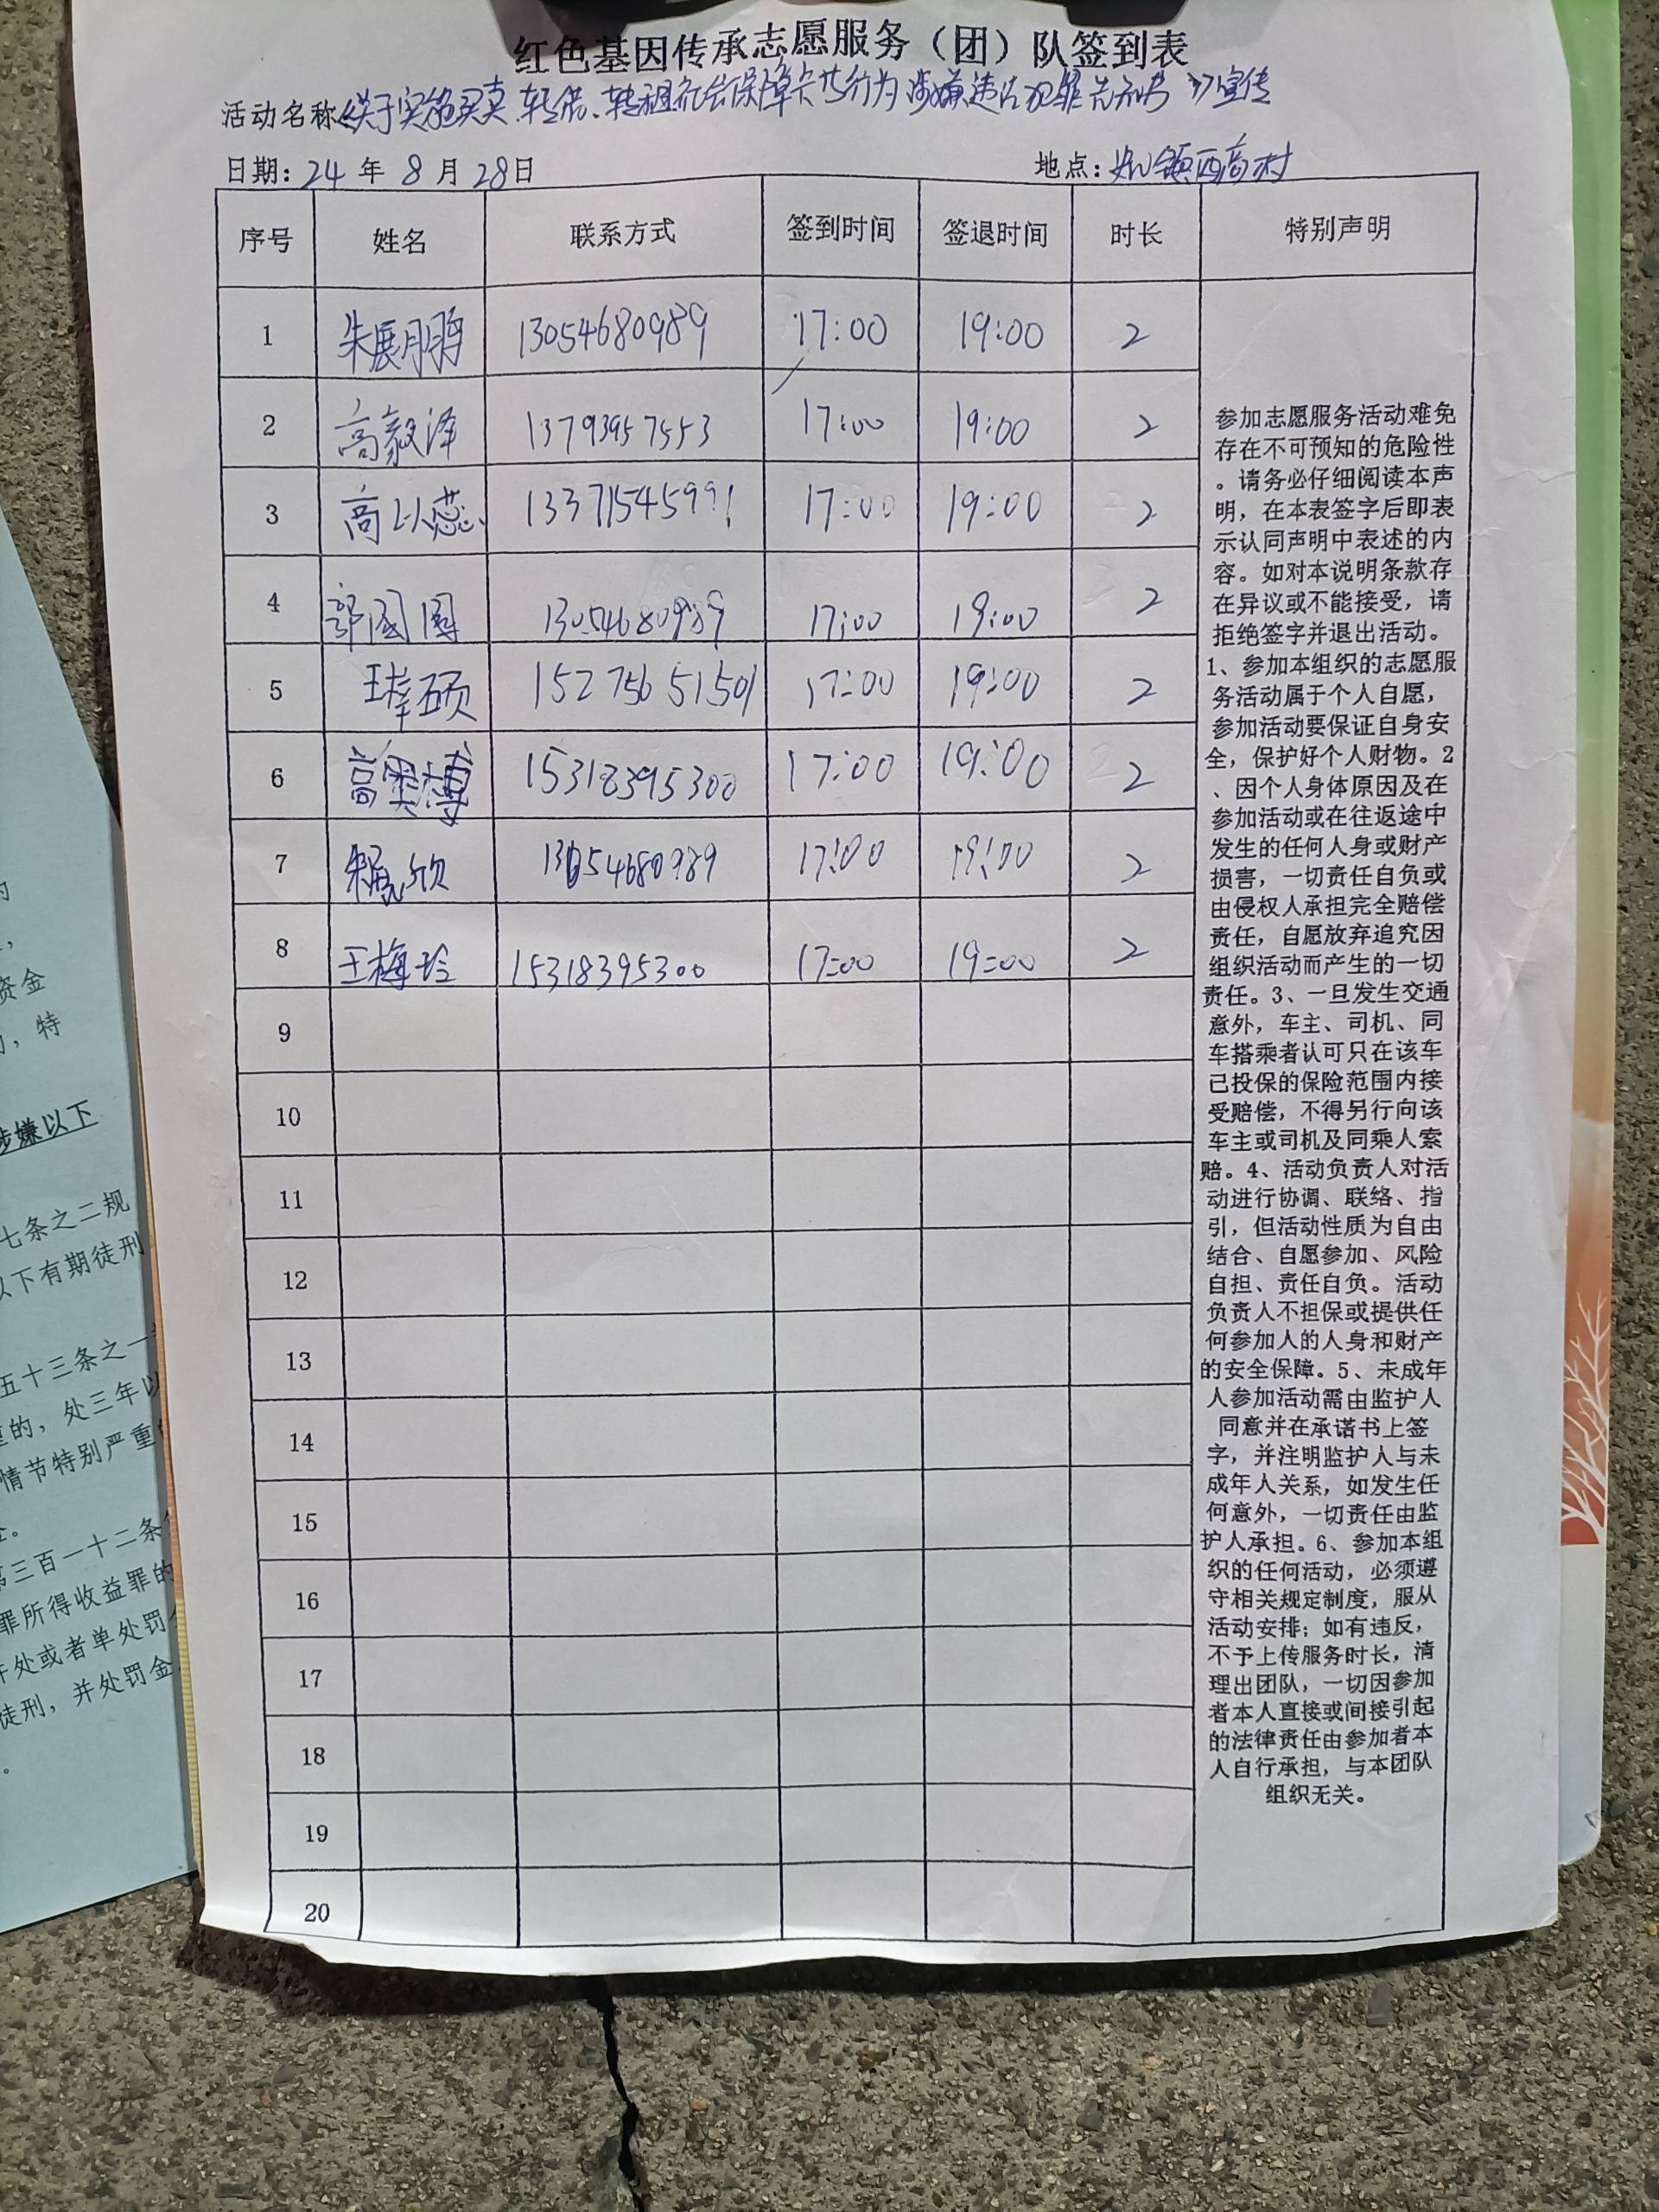 红色基因传承志愿服务（团）队签到表
活动名称《关于实施买卖、转借、转租社会保障卡等行为涉嫌违法犯罪告知书》宣传
日期：24年8月28日 地点：镇西高村
序号 姓名 联系方式 签到时间 签退时间 时长 特别声明
1 朱展鹏 13054680989 17:00 19:00 2
2 高毅泽 13793957553 17:00 19:00 2
3 高以蕊 13371545991 17:00 19:00 2
4 郭园园 13054680989 17:00 19:00 2
5 硕 15275651501 17:00 19:00 2
6 高奥博 15318395300 17:00 19:00 2
7 欣 13054680989 17:00 19:00 2
8 王梅玲 15318395300 17:00 19:00 2
9
10
11
12
13
14
15
16
17
18
19
20
参加志愿服务活动难免
存在不可预知的危险性
。请务必仔细阅读本声
明，在本表签字后即表
示认同声明中表述的内
容。如对本说明条款存
在异议或不能接受，请
拒绝签字并退出活动。
1、参加本组织的志愿服
务活动属于个人自愿，
参加活动要保证自身安
全，保护好个人财物。2
、因个人身体原因及在
参加活动或在往返途中
发生的任何人身或财产
损害，一切责任自负或
由侵权人承担完全赔偿
责任，自愿放弃追究因
组织活动而产生的一切
责任。3、一旦发生交通
意外，车主、司机、同
车搭乘者认可只在该车
已投保的保险范围内接
受赔偿，不得另行向该
车主或司机及同乘人索
赔。4、活动负责人对活
动进行协调、联络、指
引，但活动性质为自由
结合、自愿参加、风险
自担、责任自负。活动
负责人不担保或提供任
何参加人的人身和财产
的安全保障。5、未成年
人参加活动需由监护人
同意并在承诺书上签
字，并注明监护人与未
成年人关系，如发生任
何意外，一切责任由监
护人承担。6、参加本组
织的任何活动，必须遵
守相关规定制度，服从
活动安排；如有违反，
不予上传服务时长，清
理出团队，一切因参加
者本人直接或间接引起
的法律责任由参加者本
人自行承担，与本团队
组织无关。
资金
，特
涉嫌以下
七条之二规
以下有期徒刑
五十三条之一
重的，处三年以
情节特别严重
第三百一十二条
罪所得收益罪的
并处或者单处罚
徒刑，并处罚金